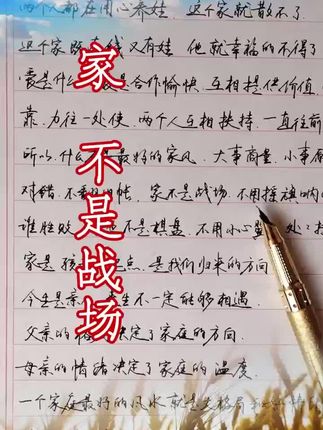 两个人都在用心养娃，这个家就散不了
这个家既有钱又有娃，他就幸福的不得了
爱是什么 是合作愉快，互相提供价值
靠，力往一处使，两个人互相扶持，一直往前
所以什么 最好的家风，大事商量，小事
对错，不翻旧帐，家不是战场，不用摇旗呐
谁胜败 不是棋盘，不用小心 处
家是孩 点，是我们归来的方向
今生是亲 生不一定能够相遇
父亲的 决定了家庭的方向
母亲的情绪决定了家庭的温度
一个家庭最好的风水就是 格局
家
不是战场